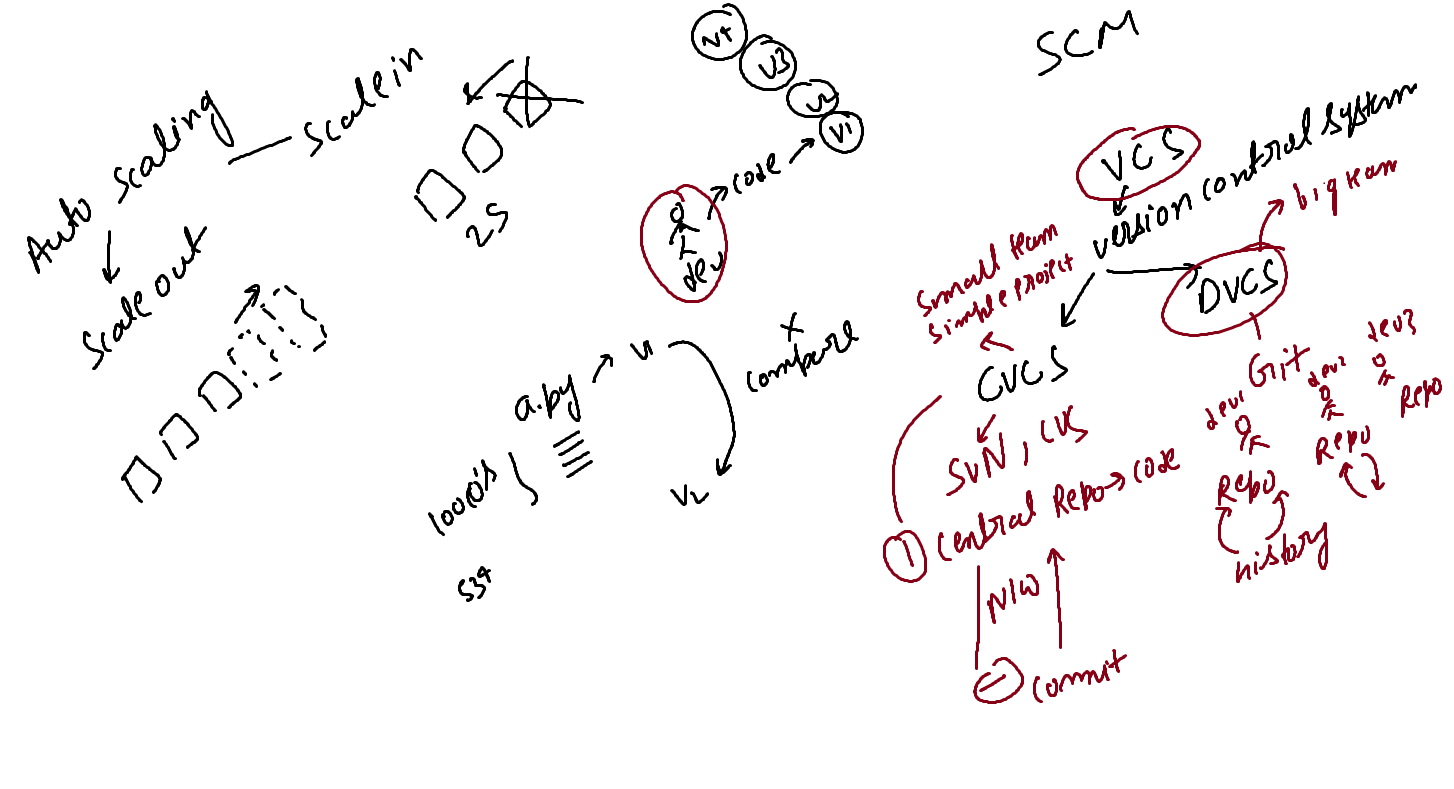 Auto scaling
scale in
scale out
25
V3
V2
V1
code
dev
a.py
V1
compare
V2
1000's
534
SCM
VCS
version control system
big team
DVCS
small team
simple project
CVCS
SVN, CVS
Central Repo → code
N/W
commit
Git
dev1
dev2
dev3
Repo
Repo
Repo
history
1